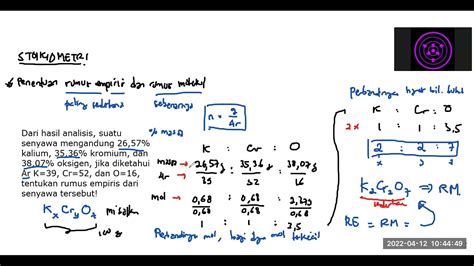 STOIKIOMETRI
Penentuan rumus empiris dan rumus molekul
paling sederhana sebenarnya
n = g / Ar
% massa
Dari hasil analisis, suatu
senyawa mengandung 26,57%
kalium, 35,36% kromium, dan
38,07% oksigen, jika diketahui
Ar K=39, Cr=52, dan O=16,
tentukan rumus empiris dari
senyawa tersebut!
KxCryOz misalkan
100 g
K : Cr : O
massa → 26,57g : 35,36g : 38,07g
Ar → 39 52 16
mol → 0,68 : 0,68 : 2,379
0,68 0,68 0,68
1 : 1 : 3,5
Perbandingan mol, bagi dgn mol terkecil
Perbandingan bil. bulat
K : Cr : O
2x 1 : 1 : 3,5
2 : 2 : 7
x y z
K2Cr2O7 ⇒ RM
RE = RM =
2022-04-12 10:44:49